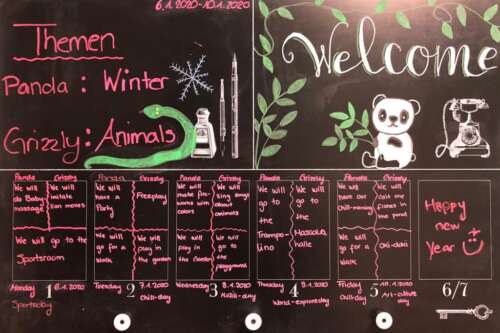 6.1.2020-10.1.2020
Themen
Panda : Winter
Grizzly : Animals
Welcome
Panda
We will
do Baby
massage
Grizzly
We will
imitate
lion moves
We will go to the
Sportsroom
Panda
We will
have a
Party
Grizzly
Freeplay
We will
go for a
walk
We will
play in
the garden
Panda
We will
make
with
colors
Grizzly
We will
sing songs
about
animals
We will
play in
the
garden
We will
go to
the
playground
Panda
We will
go to
the
Trampo-
lino
Grizzly
We will
go to
the
halle
Panda
We will
have our
Chill-morning
Grizzly
We will
visit the
fishes in
the pond
We will
go for a
walk
Oki-doki
Happy
new
year
Monday 1 6.1.2020
Sportsday
Tuesday 2 7.1.2020
Chill-day
Wednesday 3 8.1.2020
Musik-day
Thursday 4 9.1.2020
World-exploreday
Friday 5 10.1.2020
Chill-day
6/7